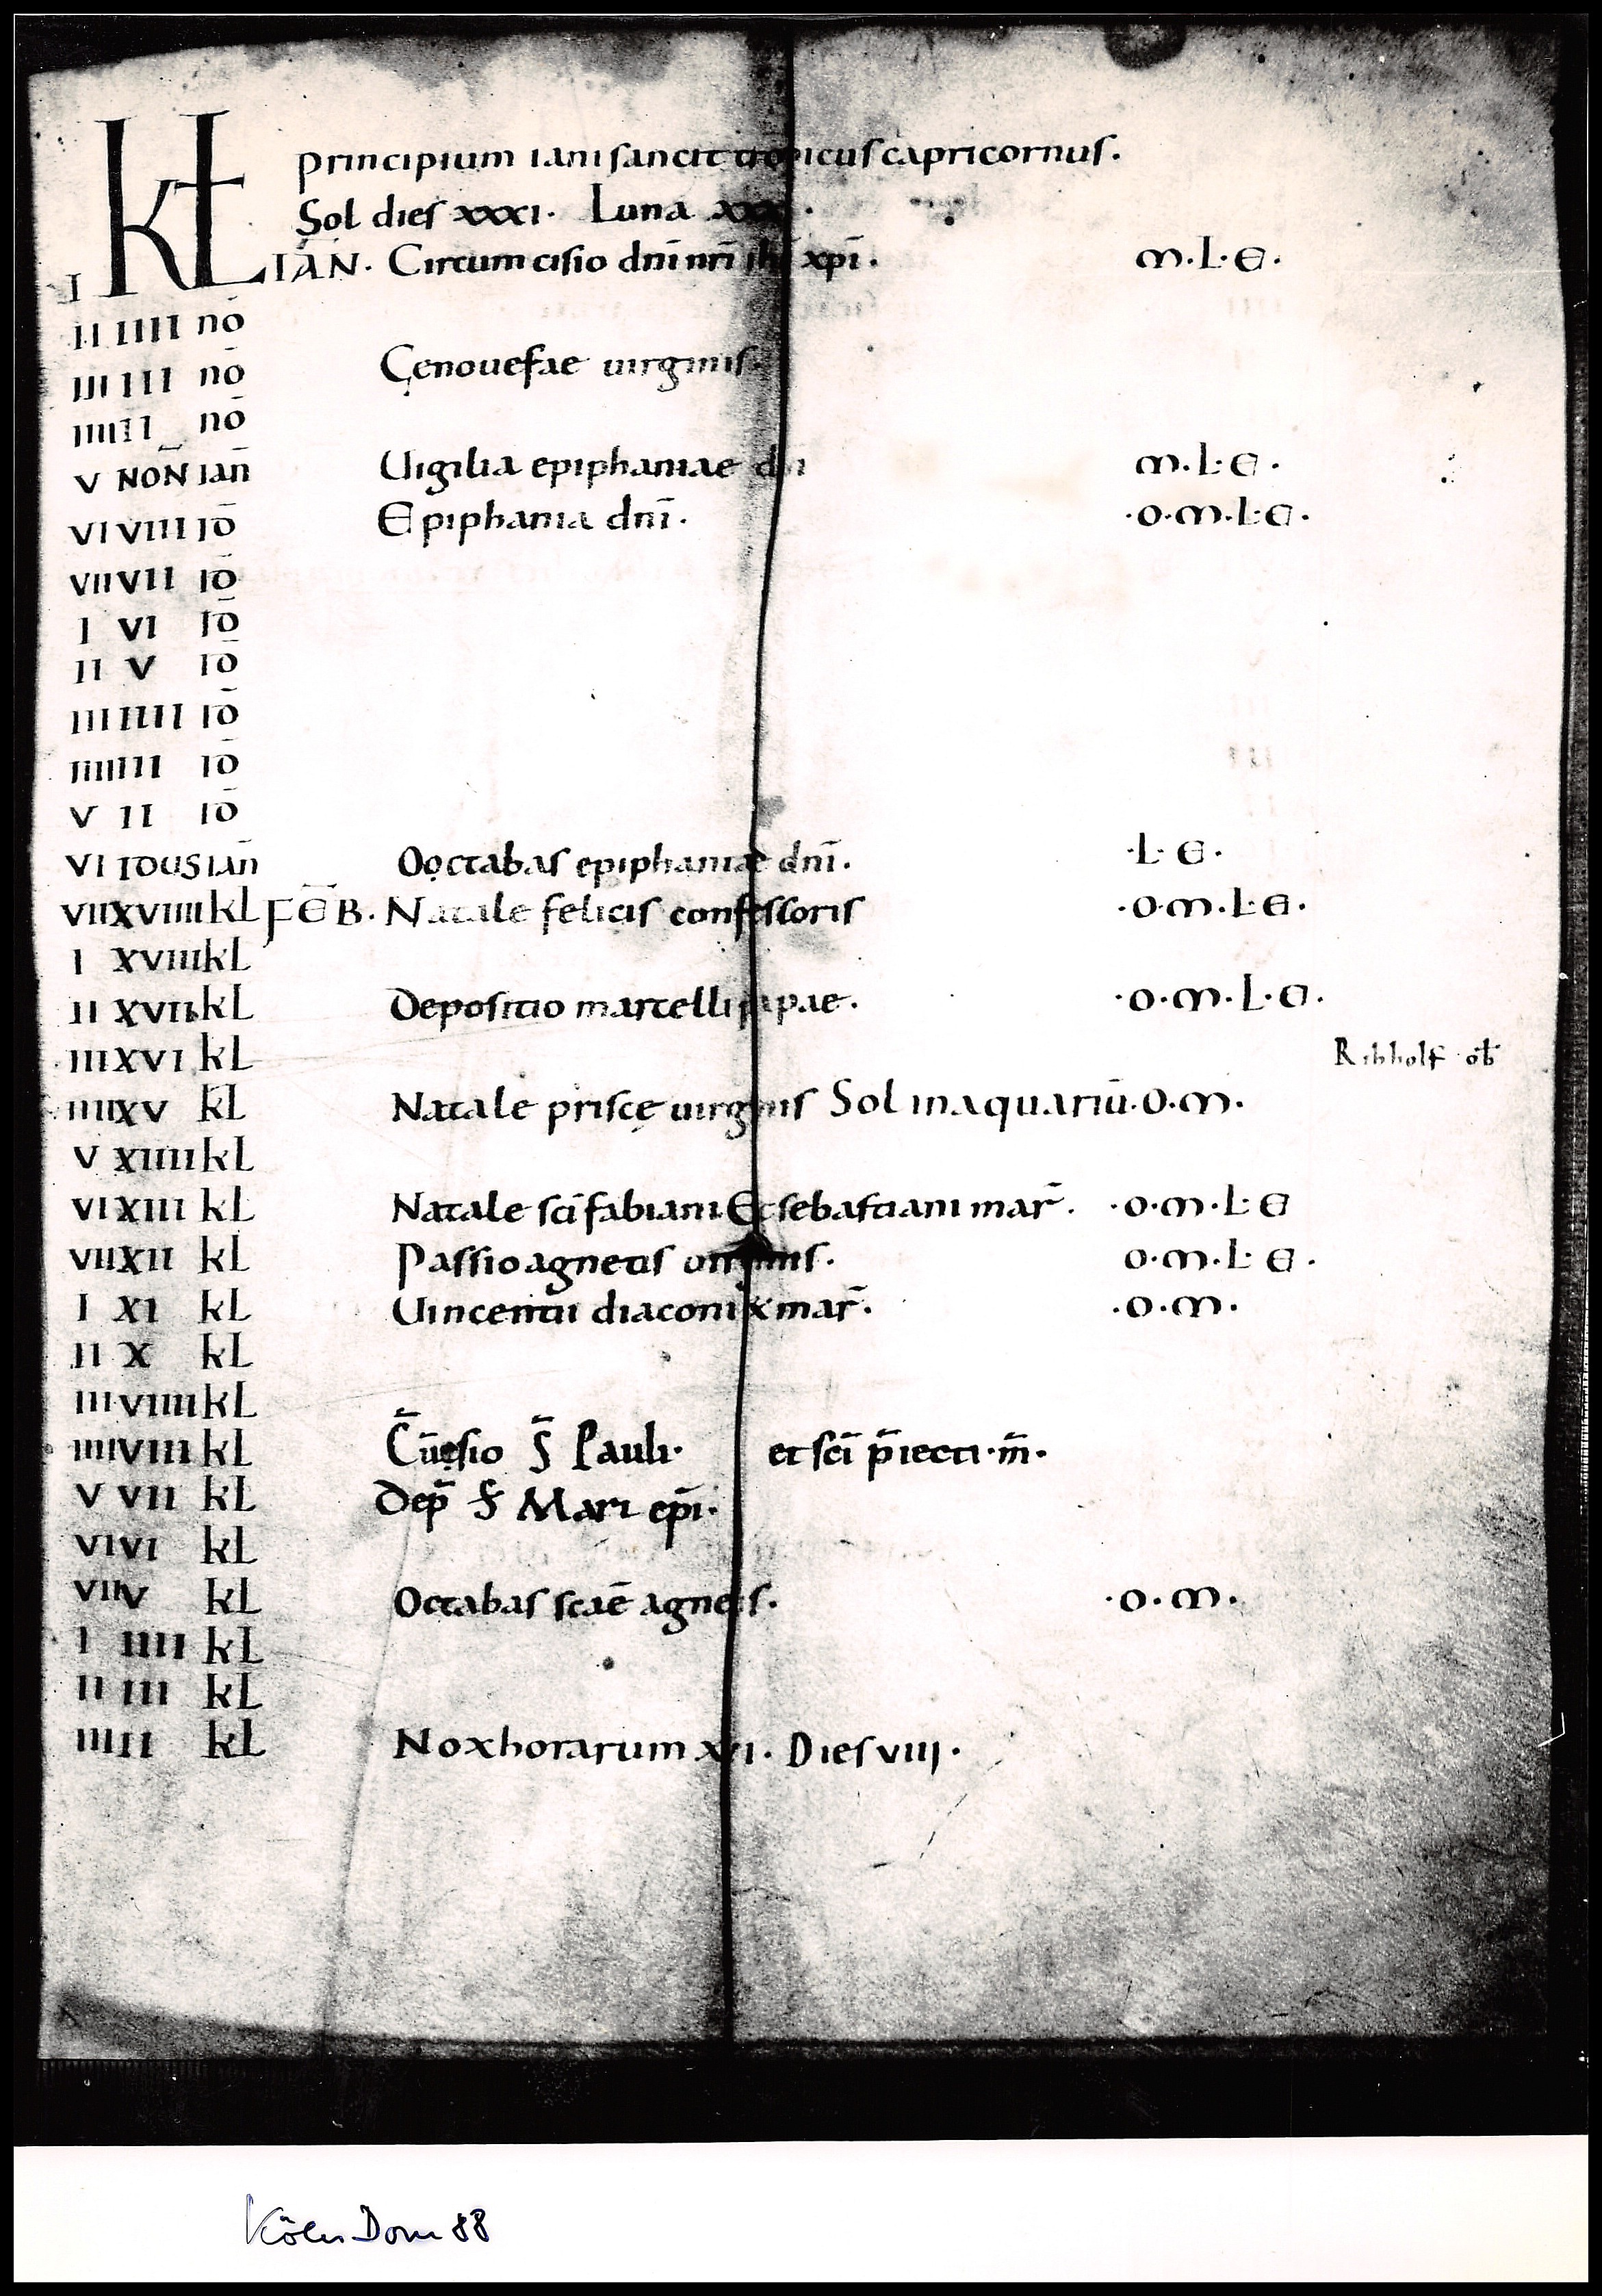 KL principium iani sancit tropicus capricornus.
Sol dies xxxi. Luna
I IAN. Circumcisio dnī nrī ihū xpī. m.L.E.
II IIII nō
III III nō Genouefae uirginis.
IIII II nō
V NON̄ ian̄ Uigilia epiphaniae dni m.L.E.
VI VIII ID̄ Epiphania dnī. .o.m.L.E.
VII VII ID̄
I VI ID̄
II V ID̄
III IIII ID̄
IIII III ID̄
V II ID̄
VI IDUS ian̄ Ooctabas epiphaniae dnī. .L.E.
VII XVIIII kL FĒB. Natale felicis confessoris .o.m.L.E.
I XVIII kL
II XVII kL Depositio marcelli papae. .o.m.L.E.
III XVI kL Ribholf ob̄
IIII XV kL Natale priscę uirginis Sol in aquariū. O.m.
V XIIII kL
VI XIII kL Natale scī fabiani Et sebastiani mar̄. .o.m.L.E
VII XII kL Passio agnetis uirginis. o.m.L.E.
I XI kL Uincentii diaconi x mar̄. .o.m.
II X kL
III VIIII kL
IIII VIII kL C̄uersio S̄ Pauli. et scī p̄iecti.m̄.
V VII kL Dep̄ S̄ Mari ep̄i.
VI VI kL
VII V kL Octabas scaē agnetis. .o.m.
I IIII kL
II III kL
IIII II kL Nox horarum xvi. Dies viii.
Köln Dom 88